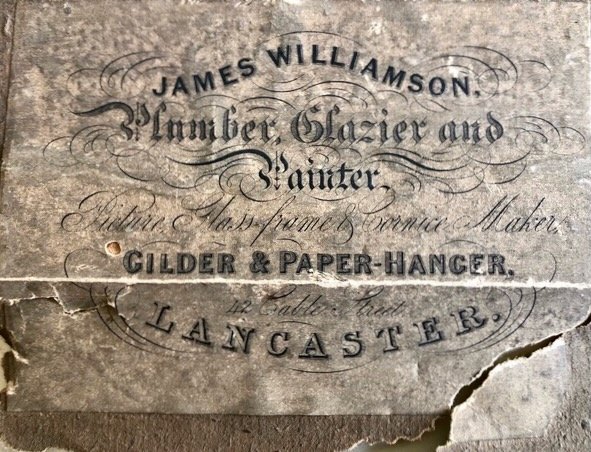 JAMES WILLIAMSON,
Plumber, Glazier and
Painter,
Picture, Glass-frame & Cornice Maker,
GILDER & PAPER-HANGER.
42 Cable Street
LANCASTER.